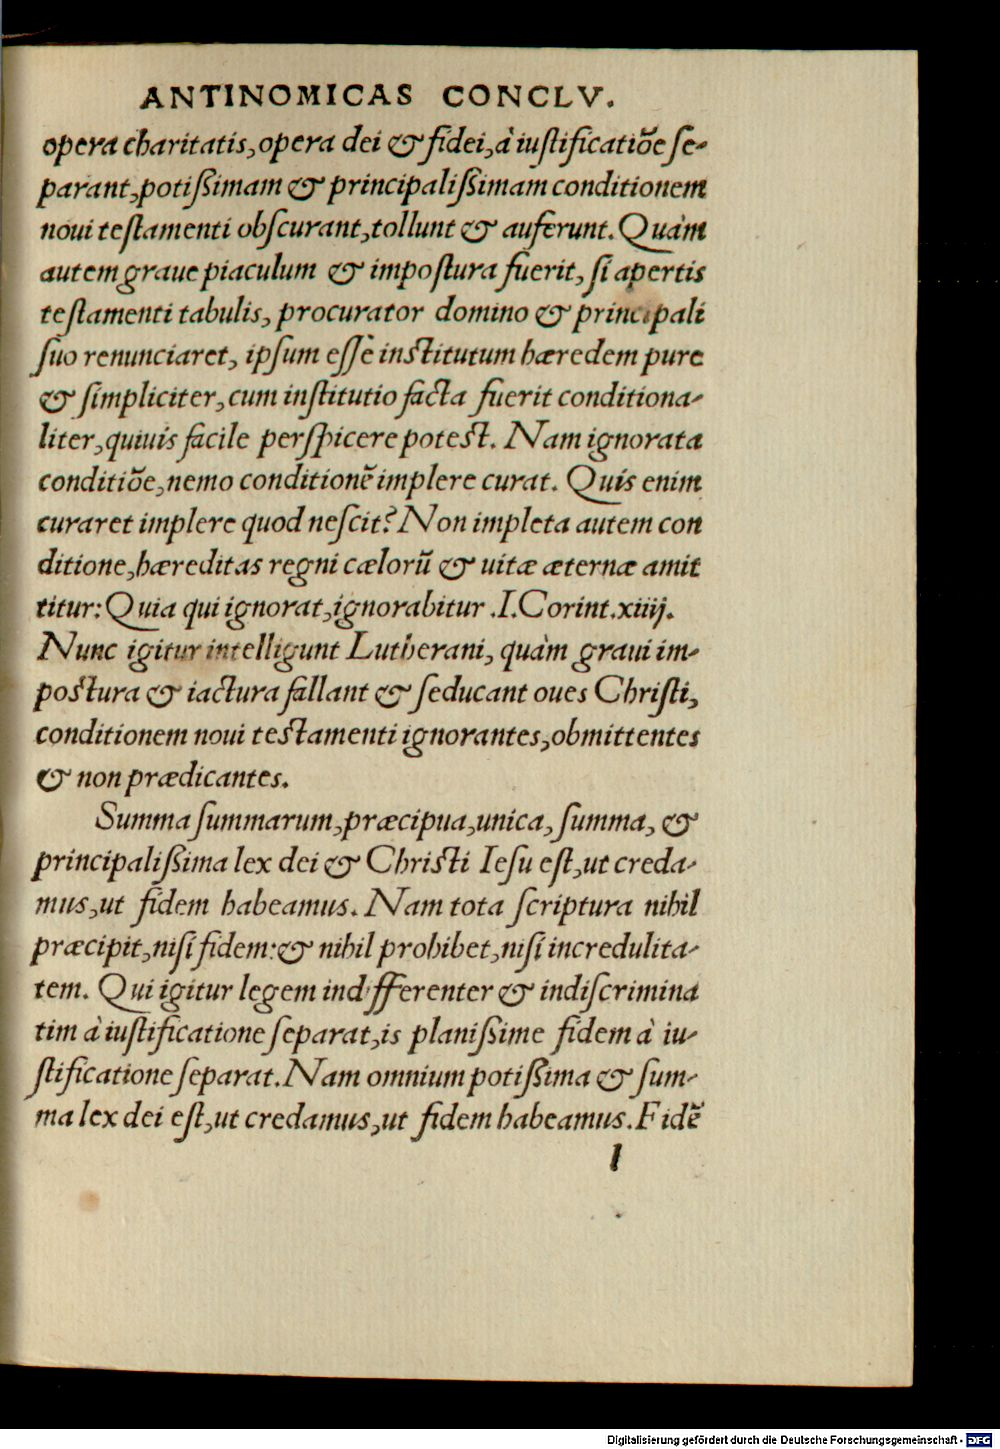 ANTINOMICAS CONCLV.
opera charitatis, opera dei & fidei, à iustificatiõe se-
parant, potißimam & principalißimam conditionem
noui testamenti obscurant, tollunt & auferunt. Quàm
autem graue piaculum & impostura fuerit, si apertis
testamenti tabulis, procurator domino & principali
suo renunciaret, ipsum esse institutum hæredem pure
& simpliciter, cum institutio facta fuerit conditiona-
liter, quiuis facile perspicere potest. Nam ignorata
conditiõe, nemo conditionẽ implere curat. Quis enim
curaret implere quod nescit? Non impleta autem con
ditione, hæreditas regni cælorũ & uitæ æternæ amit
titur: Quia qui ignorat, ignorabitur .I. Corint. xiiij.
Nunc igitur intelligunt Lutherani, quàm graui im-
postura & iactura fallant & seducant oues Christi,
conditionem noui testamenti ignorantes, obmittentes
& non prædicantes.
Summa summarum, præcipua, unica, summa, &
principalißima lex dei & Christi Iesu est, ut creda-
mus, ut fidem habeamus. Nam tota scriptura nihil
præcipit, nisi fidem: & nihil prohibet, nisi incredulita-
tem. Qui igitur legem indifferenter & indiscrimina
tim à iustificatione separat, is planißime fidem à iu-
stificatione separat. Nam omnium potißima & sum-
ma lex dei est, ut credamus, ut fidem habeamus. Fidẽ
l
Digitalisierung gefördert durch die Deutsche Forschungsgemeinschaft - DFG